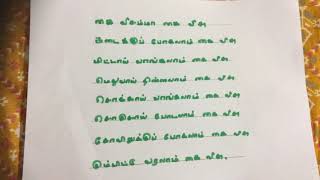 கை வீசம்மா கை வீசு
கடைக்குப் போகலாம் கை வீசு
மிட்டாய் வாங்கலாம் கை வீசு
மெதுவாய் தின்னலாம் கை வீசு
சொக்காய் வாங்கலாம் கை வீசு
சொகுசாய் போடலாம் கை வீசு
கோவிலுக்குப் போகலாம் கை வீசு
கும்பிட்டு வரலாம் கை வீசு.